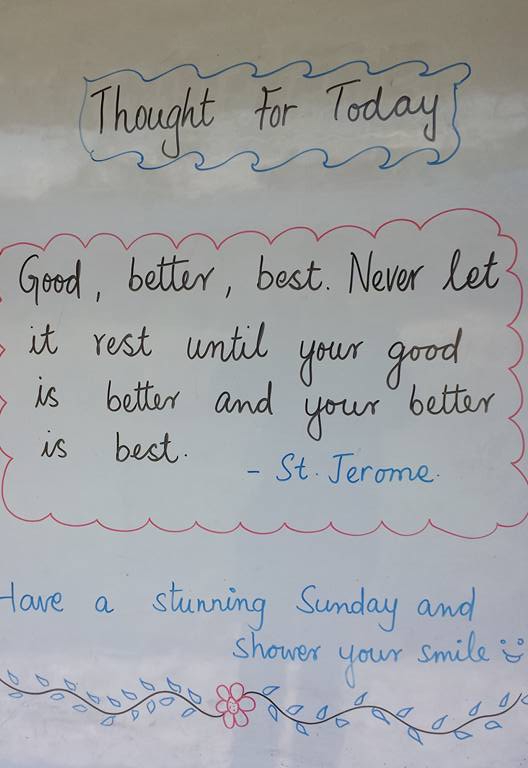 Thought For Today
Good, better, best. Never let
it rest until your good
is better and your better
is best.
- St. Jerome.
Have a stunning Sunday and
shower your smile